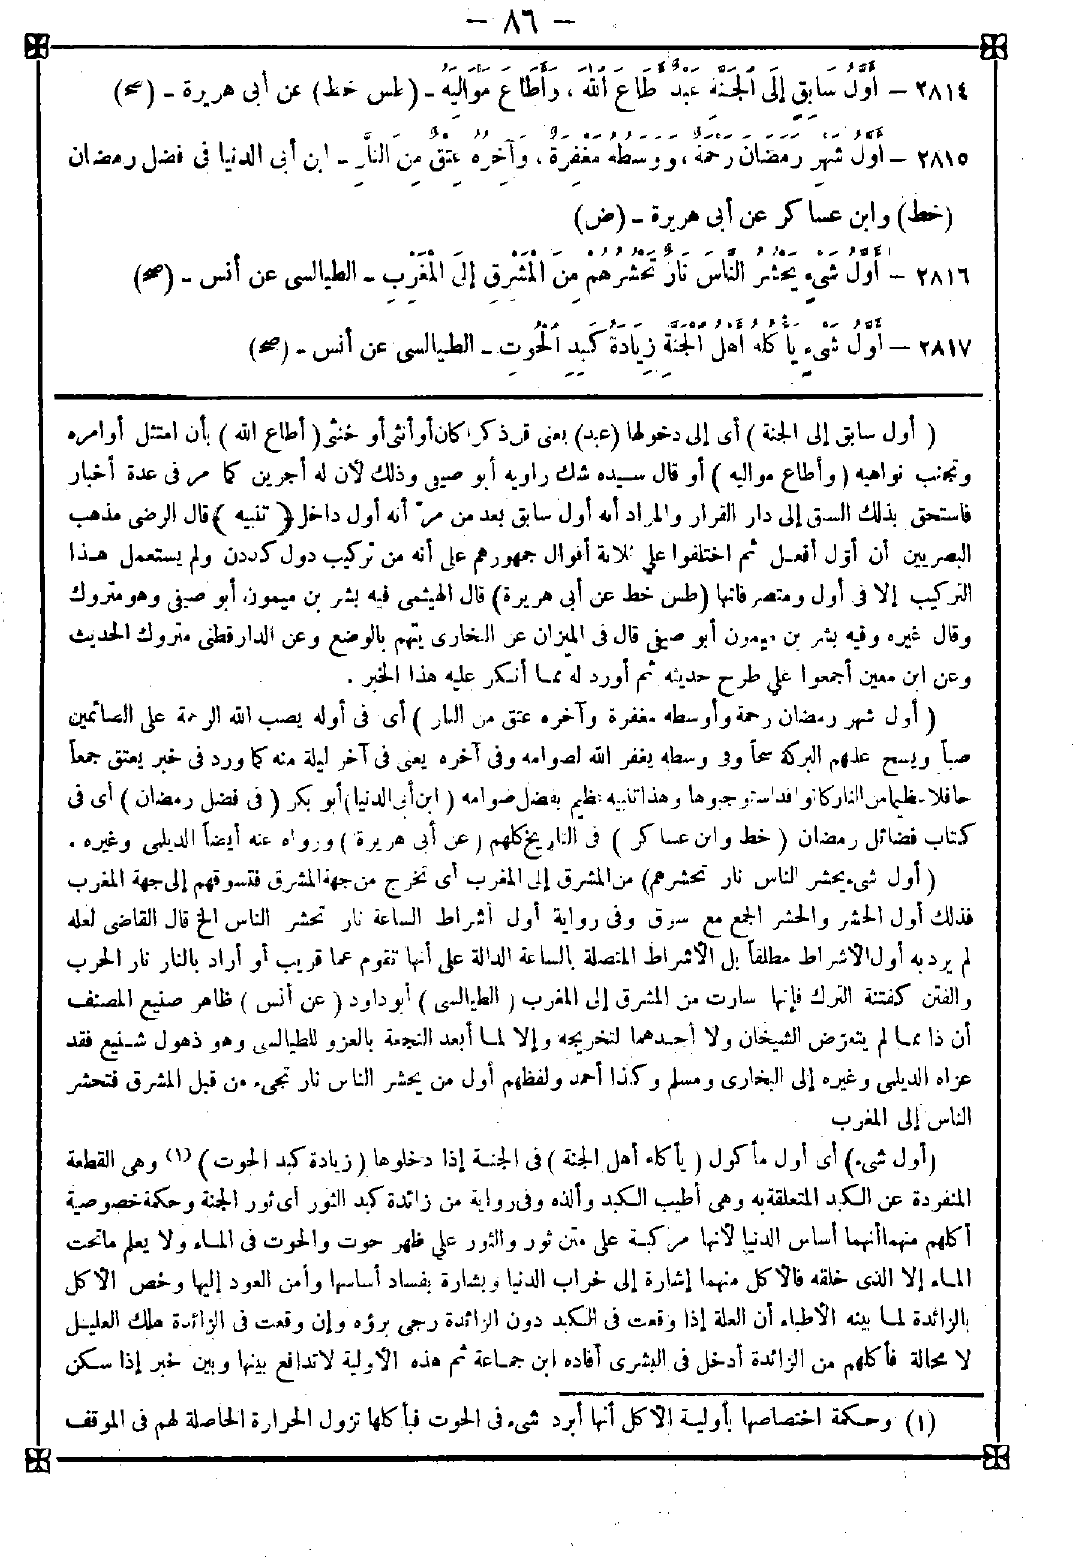 — ٨٦ —
٢٨١٤ — أَوَّلُ سَابِقٍ إِلَى الْجَنَّةِ عَبْدٌ أَطَاعَ اللَّهَ ، وَأَطَاعَ مَوَالِيَهُ - (طس خط) عن أبى هريرة - (صح)
٢٨١٥ — أَوَّلُ شَهْرِ رَمَضَانَ رَحْمَةٌ ، وَوَسَطُهُ مَغْفِرَةٌ ، وَآخِرُهُ عِتْقٌ مِنَ النَّارِ - ابن أبى الدنيا فى فضل رمضان
(خط) وابن عساكر عن أبى هريرة - (ض)
٢٨١٦ — أَوَّلُ شَىْءٍ يَحْشُرُ النَّاسَ نَارٌ تَحْشُرُهُمْ مِنَ الْمَشْرِقِ إِلَى الْمَغْرِبِ - الطيالسى عن أنس - (صح)
٢٨١٧ — أَوَّلُ شَىْءٍ يَأْكُلُهُ أَهْلُ الْجَنَّةِ زِيَادَةُ كَبِدِ الْحُوتِ - الطيالسى عن أنس - (صح)
( أول سابق إلى الجنة ) أى إلى دخولها (عبد) يعنى قن ذكرا كان أو أنثى أو خنثى ( أطاع الله ) بأن امتثل أوامره
وتجنب نواهيه ( وأطاع مواليه ) أو قال سيده شك راويه أبو صيفى وذلك لأن له أجرين كما مر فى عدة أخبار
فاستحق بذلك السبق إلى دار القرار والمراد أنه أول سابق بعد من مرّ أنه أول داخل ( تنبيه ) قال الرضى مذهب
البصريين أن أوّل أفعل ثم اختلفوا على ثلاثة أقوال جمهورهم على أنه من تركيب دول كددن ولم يستعمل هذا
التركيب إلا فى أول ومتصرفاتها (طس خط عن أبى هريرة) قال الهيثمى فيه بشر بن ميمون أبو صيفى وهو متروك
وقال غيره وفيه بشر بن ميمون أبو صيفى قال فى الميزان عن البخارى يتهم بالوضع وعن الدارقطنى متروك الحديث
وعن ابن معين أجمعوا على طرح حديثه ثم أورد له مما أنكر عليه هذا الخبر .
( أول شهر رمضان رحمة وأوسطه مغفرة وآخره عتق من النار ) أى فى أوله يصب الله الرحمة على الصائمين
صباً ويسح عليهم البركة سحاً وفى وسطه يغفر الله لصوامه وفى آخره يعنى فى آخر ليلة منه كما ورد فى خبر يعتق جمعاً
حافلا عظيما من النار كانوا قد استوجبوها وهذا تنبيه عظيم بفضل صوامه ( ابن أبى الدنيا ) أبو بكر ( فى فضل رمضان ) أى فى
كتاب فضائل رمضان ( خط وابن عساكر ) فى التاريخ كلهم ( عن أبى هريرة ) ورواه عنه أيضاً الديلمى وغيره .
( أول شىء يحشر الناس نار تحشرهم ) من المشرق إلى المغرب أى تخرج من جهة المشرق فتسوقهم إلى جهة المغرب
فذلك أول الحشر والحشر الجمع مع سوق وفى رواية أول أشراط الساعة نار تحشر الناس الخ قال القاضى لعله
لم يرد به أول الأشراط مطلقاً بل الأشراط المتصلة بالساعة الدالة على أنها تقوم عما قريب أو أراد بالنار نار الحرب
والفتن كفتنة الترك فإنها سارت من المشرق إلى المغرب ( الطيالسى ) أبو داود ( عن أنس ) ظاهر صنيع المصنف
أن ذا مما لم يتعرّض الشيخان ولا أحدهما لتخريجه وإلا لما أبعد النجعة بالعزو للطيالسى وهو ذهول شنيع فقد
عزاه الديلمى وغيره إلى البخارى ومسلم وكذا أحمد ولفظهم أول من يحشر الناس نار تجىء من قبل المشرق فتحشر
الناس إلى المغرب
( أول شىء ) أى أول مأكول ( يأكله أهل الجنة ) فى الجنة إذا دخلوها ( زيادة كبد الحوت ) (١) وهى القطعة
المنفردة عن الكبد المتعلقة به وهى أطيب الكبد وألذه وفى رواية من زائدة كبد الثور أى ثور الجنة وحكمة خصوصية
أكلهم منهما أنهما أساس الدنيا لأنها مركبة على متن ثور والثور على ظهر حوت والحوت فى الماء ولا يعلم ما تحت
الماء إلا الذى خلقه فالأكل منهما إشارة إلى خراب الدنيا وبشارة بفساد أساسها وأمن العود إليها وخص الأكل
بالزائدة لما بينه الأطباء أن العلة إذا وقعت فى الكبد دون الزائدة رجى برؤه وإن وقعت فى الزائدة هلك العليل
لا محالة فأكلهم من الزائدة أدخل فى البشرى أفاده ابن جماعة ثم هذه الأولية لا تدافع بينها وبين خبر إذا سكن
(١) وحكمة اختصاصها بأولية الأكل أنها أبرد شىء فى الحوت فبأكلها تزول الحرارة الحاصلة لهم فى الموقف